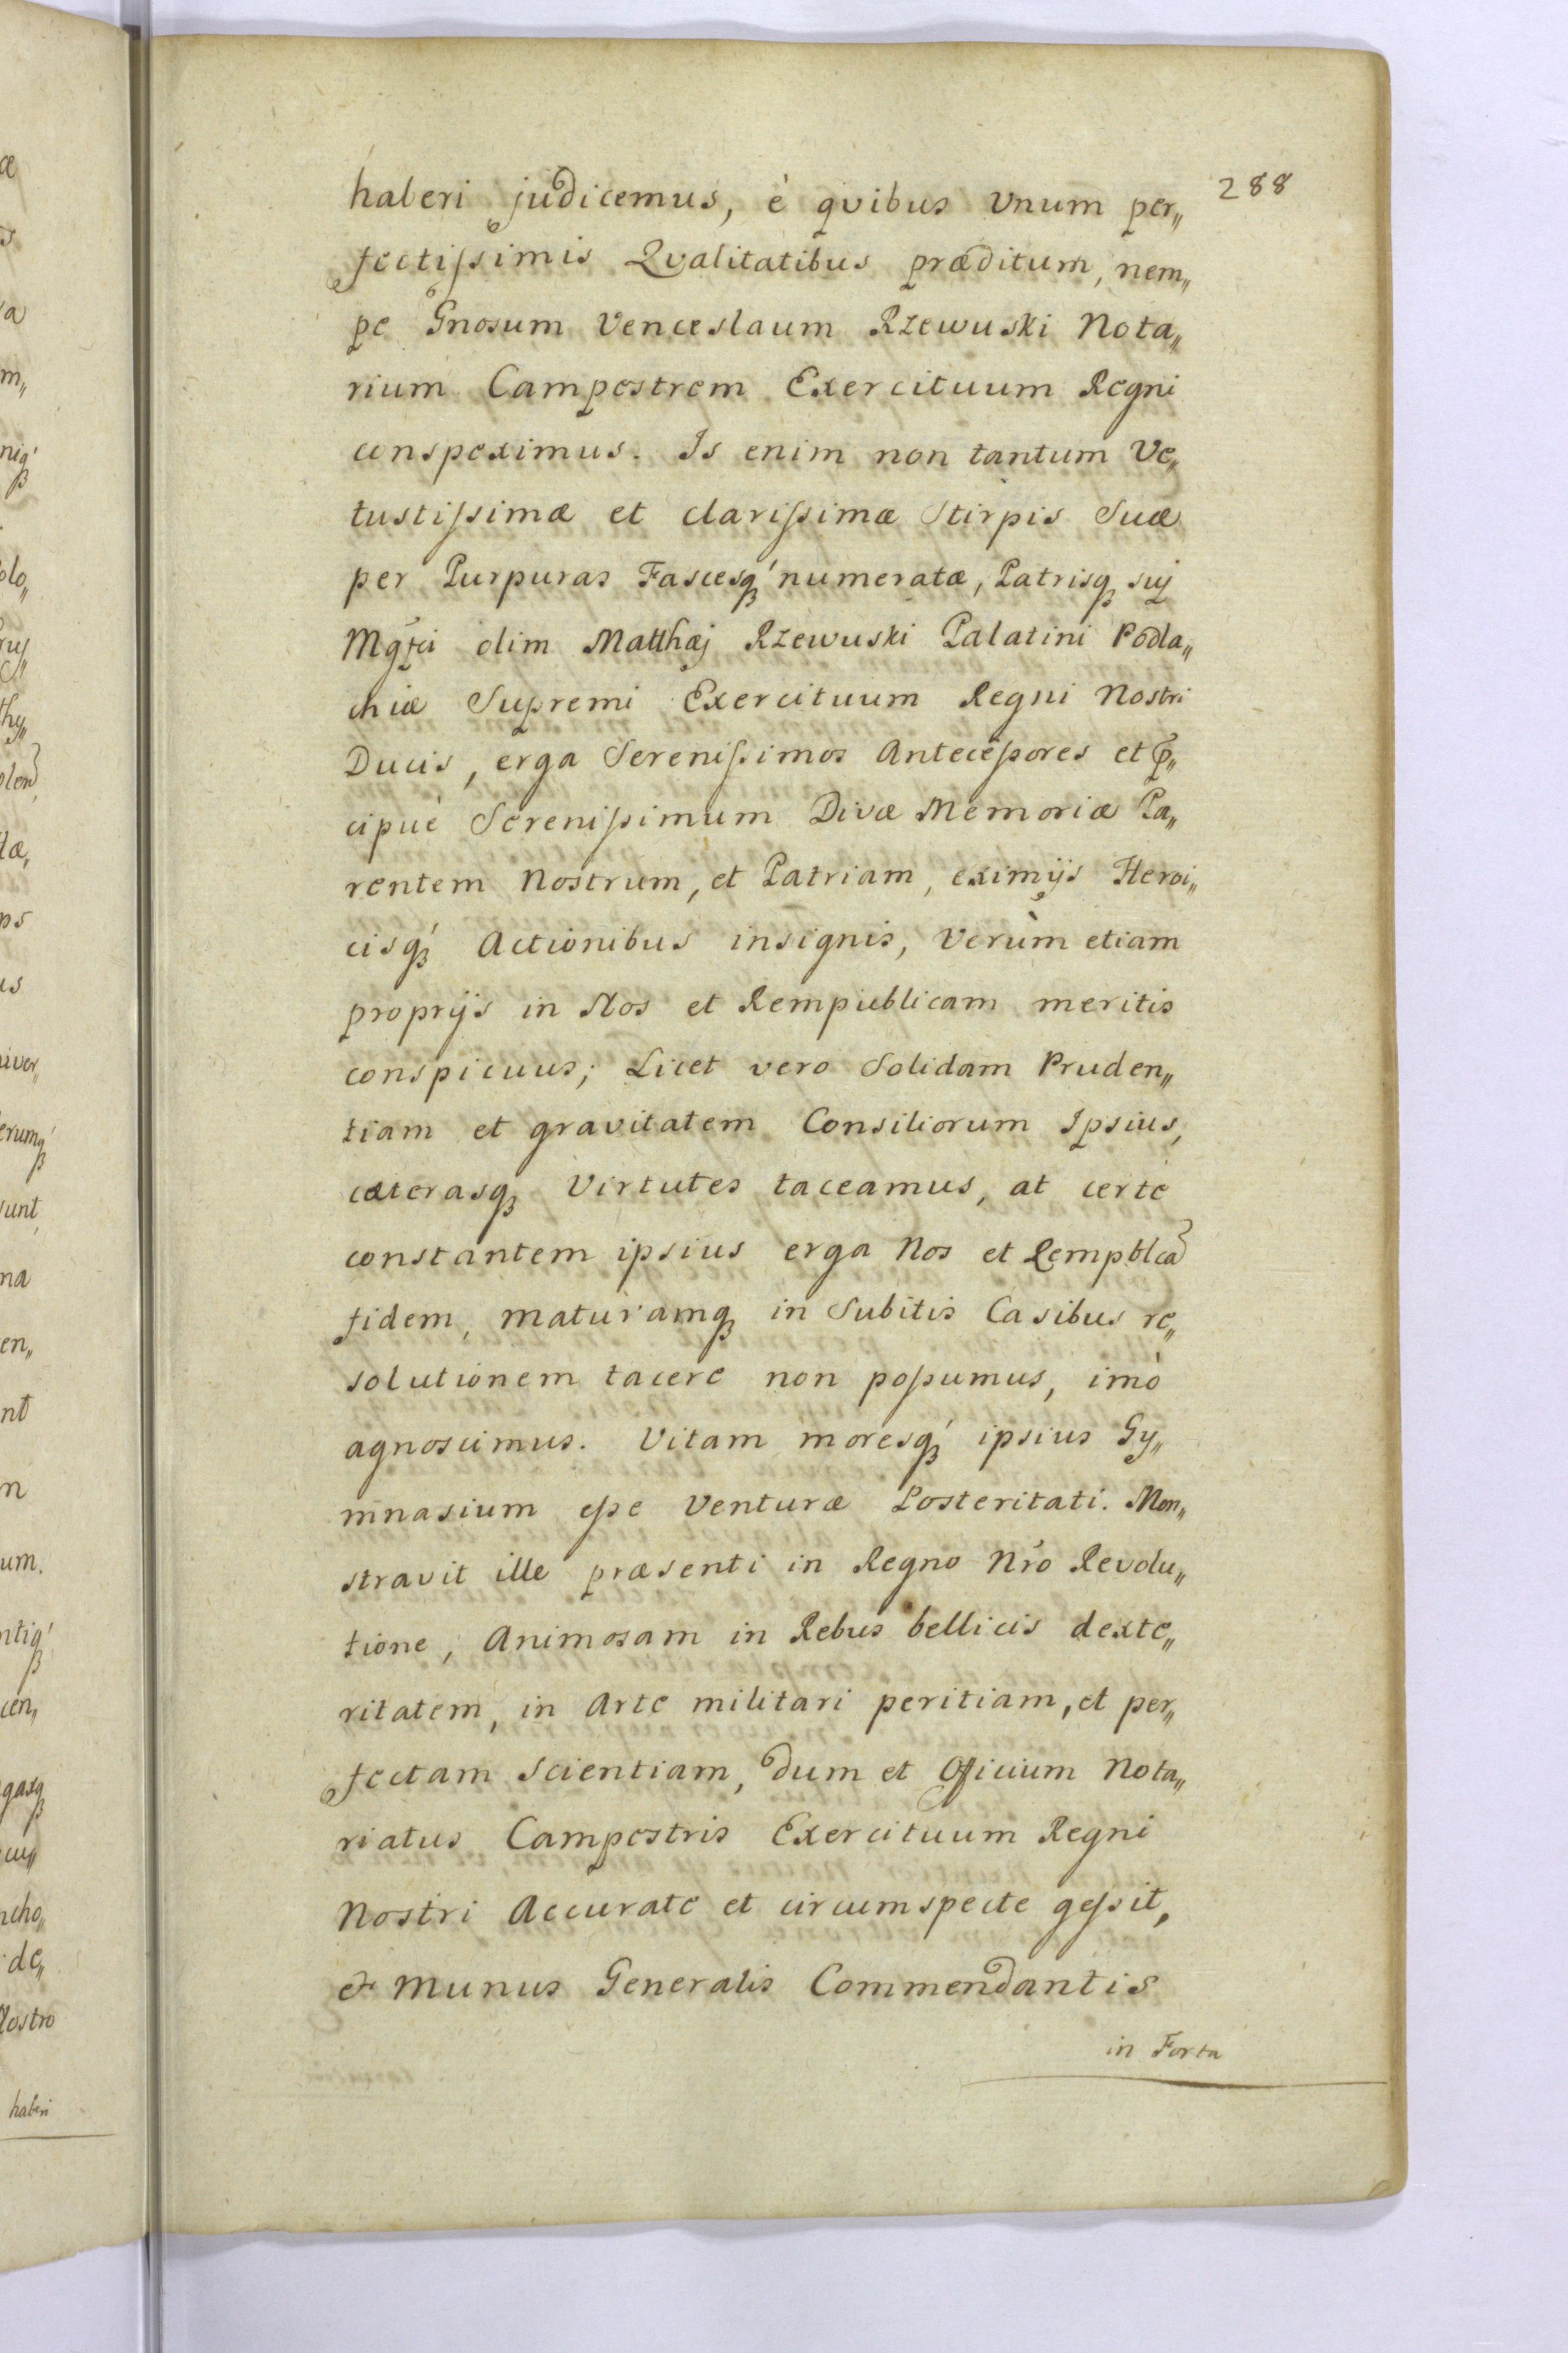 288
haberi judicemus, è qvibus Vnum per„
fectiſsimis Qvalitatibus præditum, nem„
pe Gnosum Venceslaum Rzewuski Nota„
rium Campestrem Exercituum Regni
conspeximus. Is enim non tantum Ve„
tustiſsimæ et clariſsimæ Stirpis Suæ
per Purpuras Fascesq́ꝫ numeratæ, Patrisqꝫ suj
Mgfci olim Matthæj Rzewuski Palatini Podla„
chiæ Supremi Exercituum Regni Nostri
Ducis, erga Sereniſsimos Anteceſsores et p̃„
cipuè Sereniſsimum Divæ Memoriæ Pa„
rentem Nostrum, et Patriam, eximijs Heroi„
cisq́ꝫ Actionibus insignis, Verùm etiam
proprijs in Nos et Rempublicam meritis
conspicuus; Licet vero Solidam Pruden„
tiam et gravitatem Consiliorum Ipsius,
cæterasqꝫ Virtutes taceamus, at certe
constantem ipsius erga Nos et Rempblcã
fidem, maturamqꝫ in Subitis Casibus re„
solutionem tacere non poſsumus, imò
agnoscimus. Vitam moresq́ꝫ ipsius Gy„
mnasium eſse Venturæ Posteritati. Mon„
stravit ille præsenti in Regno Nr̃o Revolu„
tione, Animosam in Rebus bellicis dexte„
ritatem, in Arte militari peritiam, et per„
fectam Scientiam, dum et Officium Nota„
riatus Campestris Exercituum Regni
Nostri Accurate et circumspecte geſsit,
& Munus Generalis Commendantis
in Forta
haberi